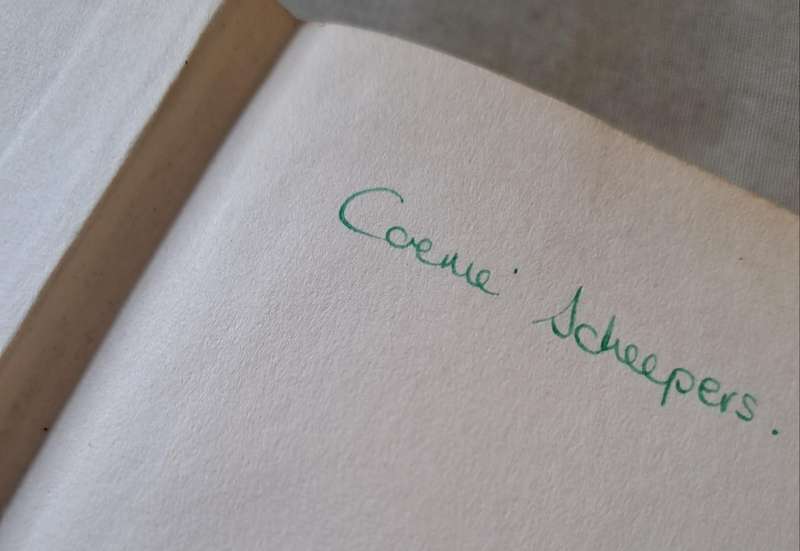 Coenie Scheepers.